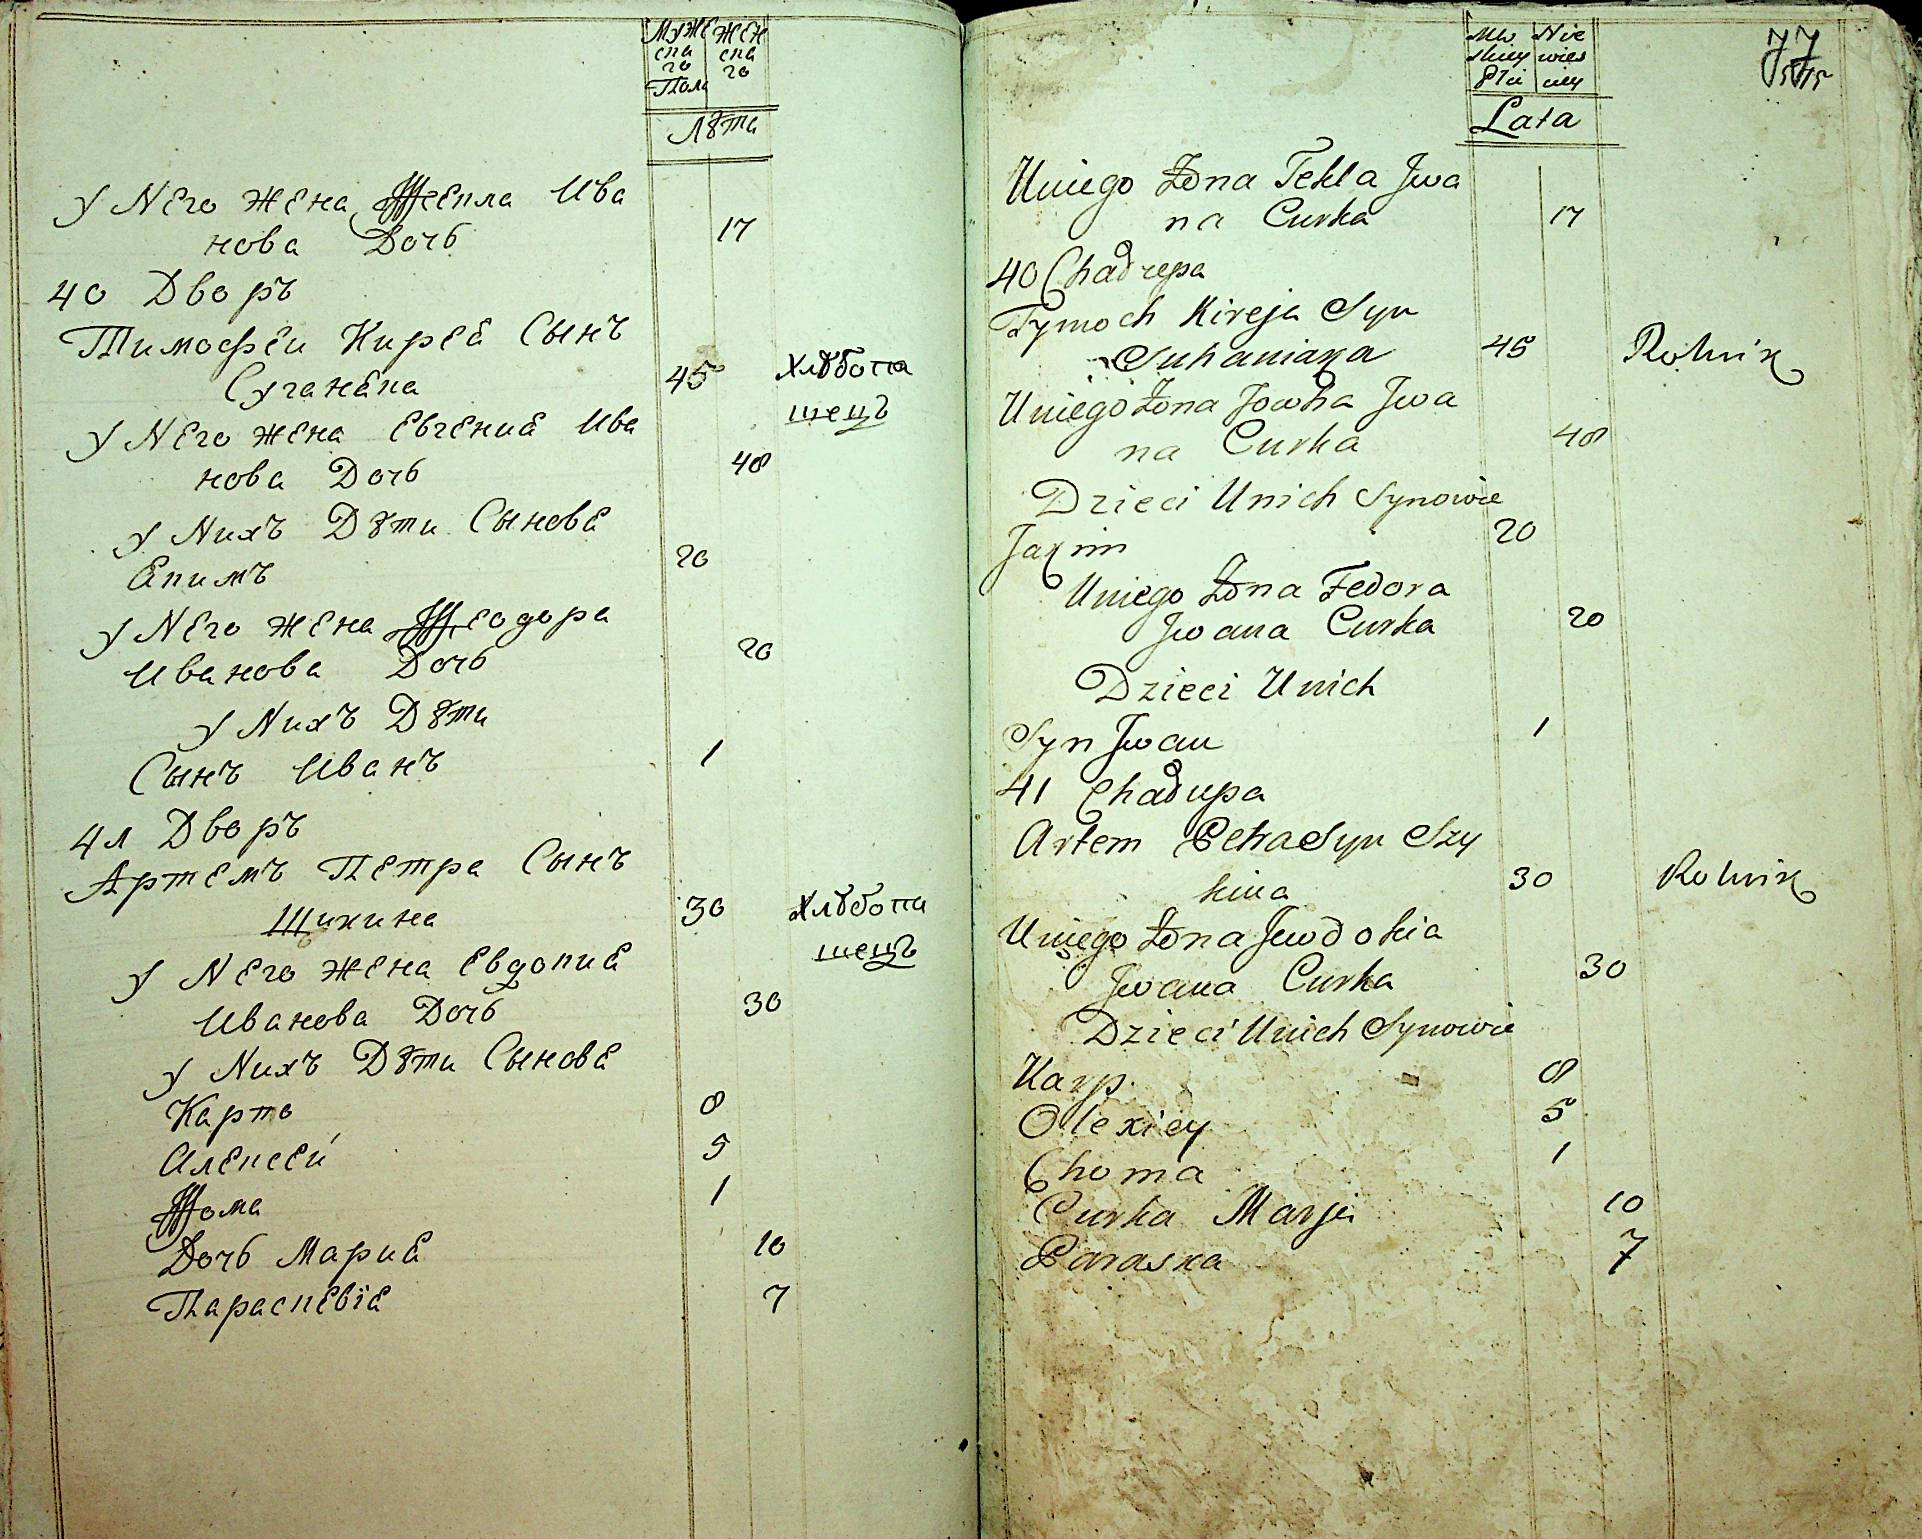 Муже Жен
ска ска
го го
Пола
Лѣта
У Него жена Феекла Ива
нова Дочь 17
40 Дворъ
Тимофеи Кирея Сынъ
Суганяка 45 Хлѣбопа
шецъ
У Него жена Евгения Ива
нова Дочь 48
У Нихъ Дѣти Сыновя
Якимъ 20
У Него жена Феодора
Иванова Дочь 20
У Нихъ Дѣти
Сынъ Иванъ 1
41 Дворъ
Артемъ Петра Сынъ
Шикина 30 Хлѣбопа
шецъ
У Него жена Евдокия
Иванова Дочь 30
У Нихъ Дѣти Сыновя
Карпъ 8
Алексей 5
Фома 1
Дочь Мария 10
Параскевїя 7
Mę Nie
skiey wies
Płci ciey
Lata
77
Uniego Żona Tekla Jwa
na Curka 17
40 Chałupa
Tymoch Kireja Syn
Suhaniaka 45 Rolnik
Uniego Żona Jowha Jwa
na Curka 48
Dzieci Unich Synowie
Jakim 20
Uniego Żona Fedora
Jwana Curka 20
Dzieci Unich
Syn Jwan 1
41 Chałupa
Artem Petra Syn Szy
kina 30 Rolnik
Uniego Żona Jewdokia
Jwana Curka 30
Dzieci Unich Synowie
Karp 8
Olexiey 5
Choma 1
Curka Marja 10
Paraska 7